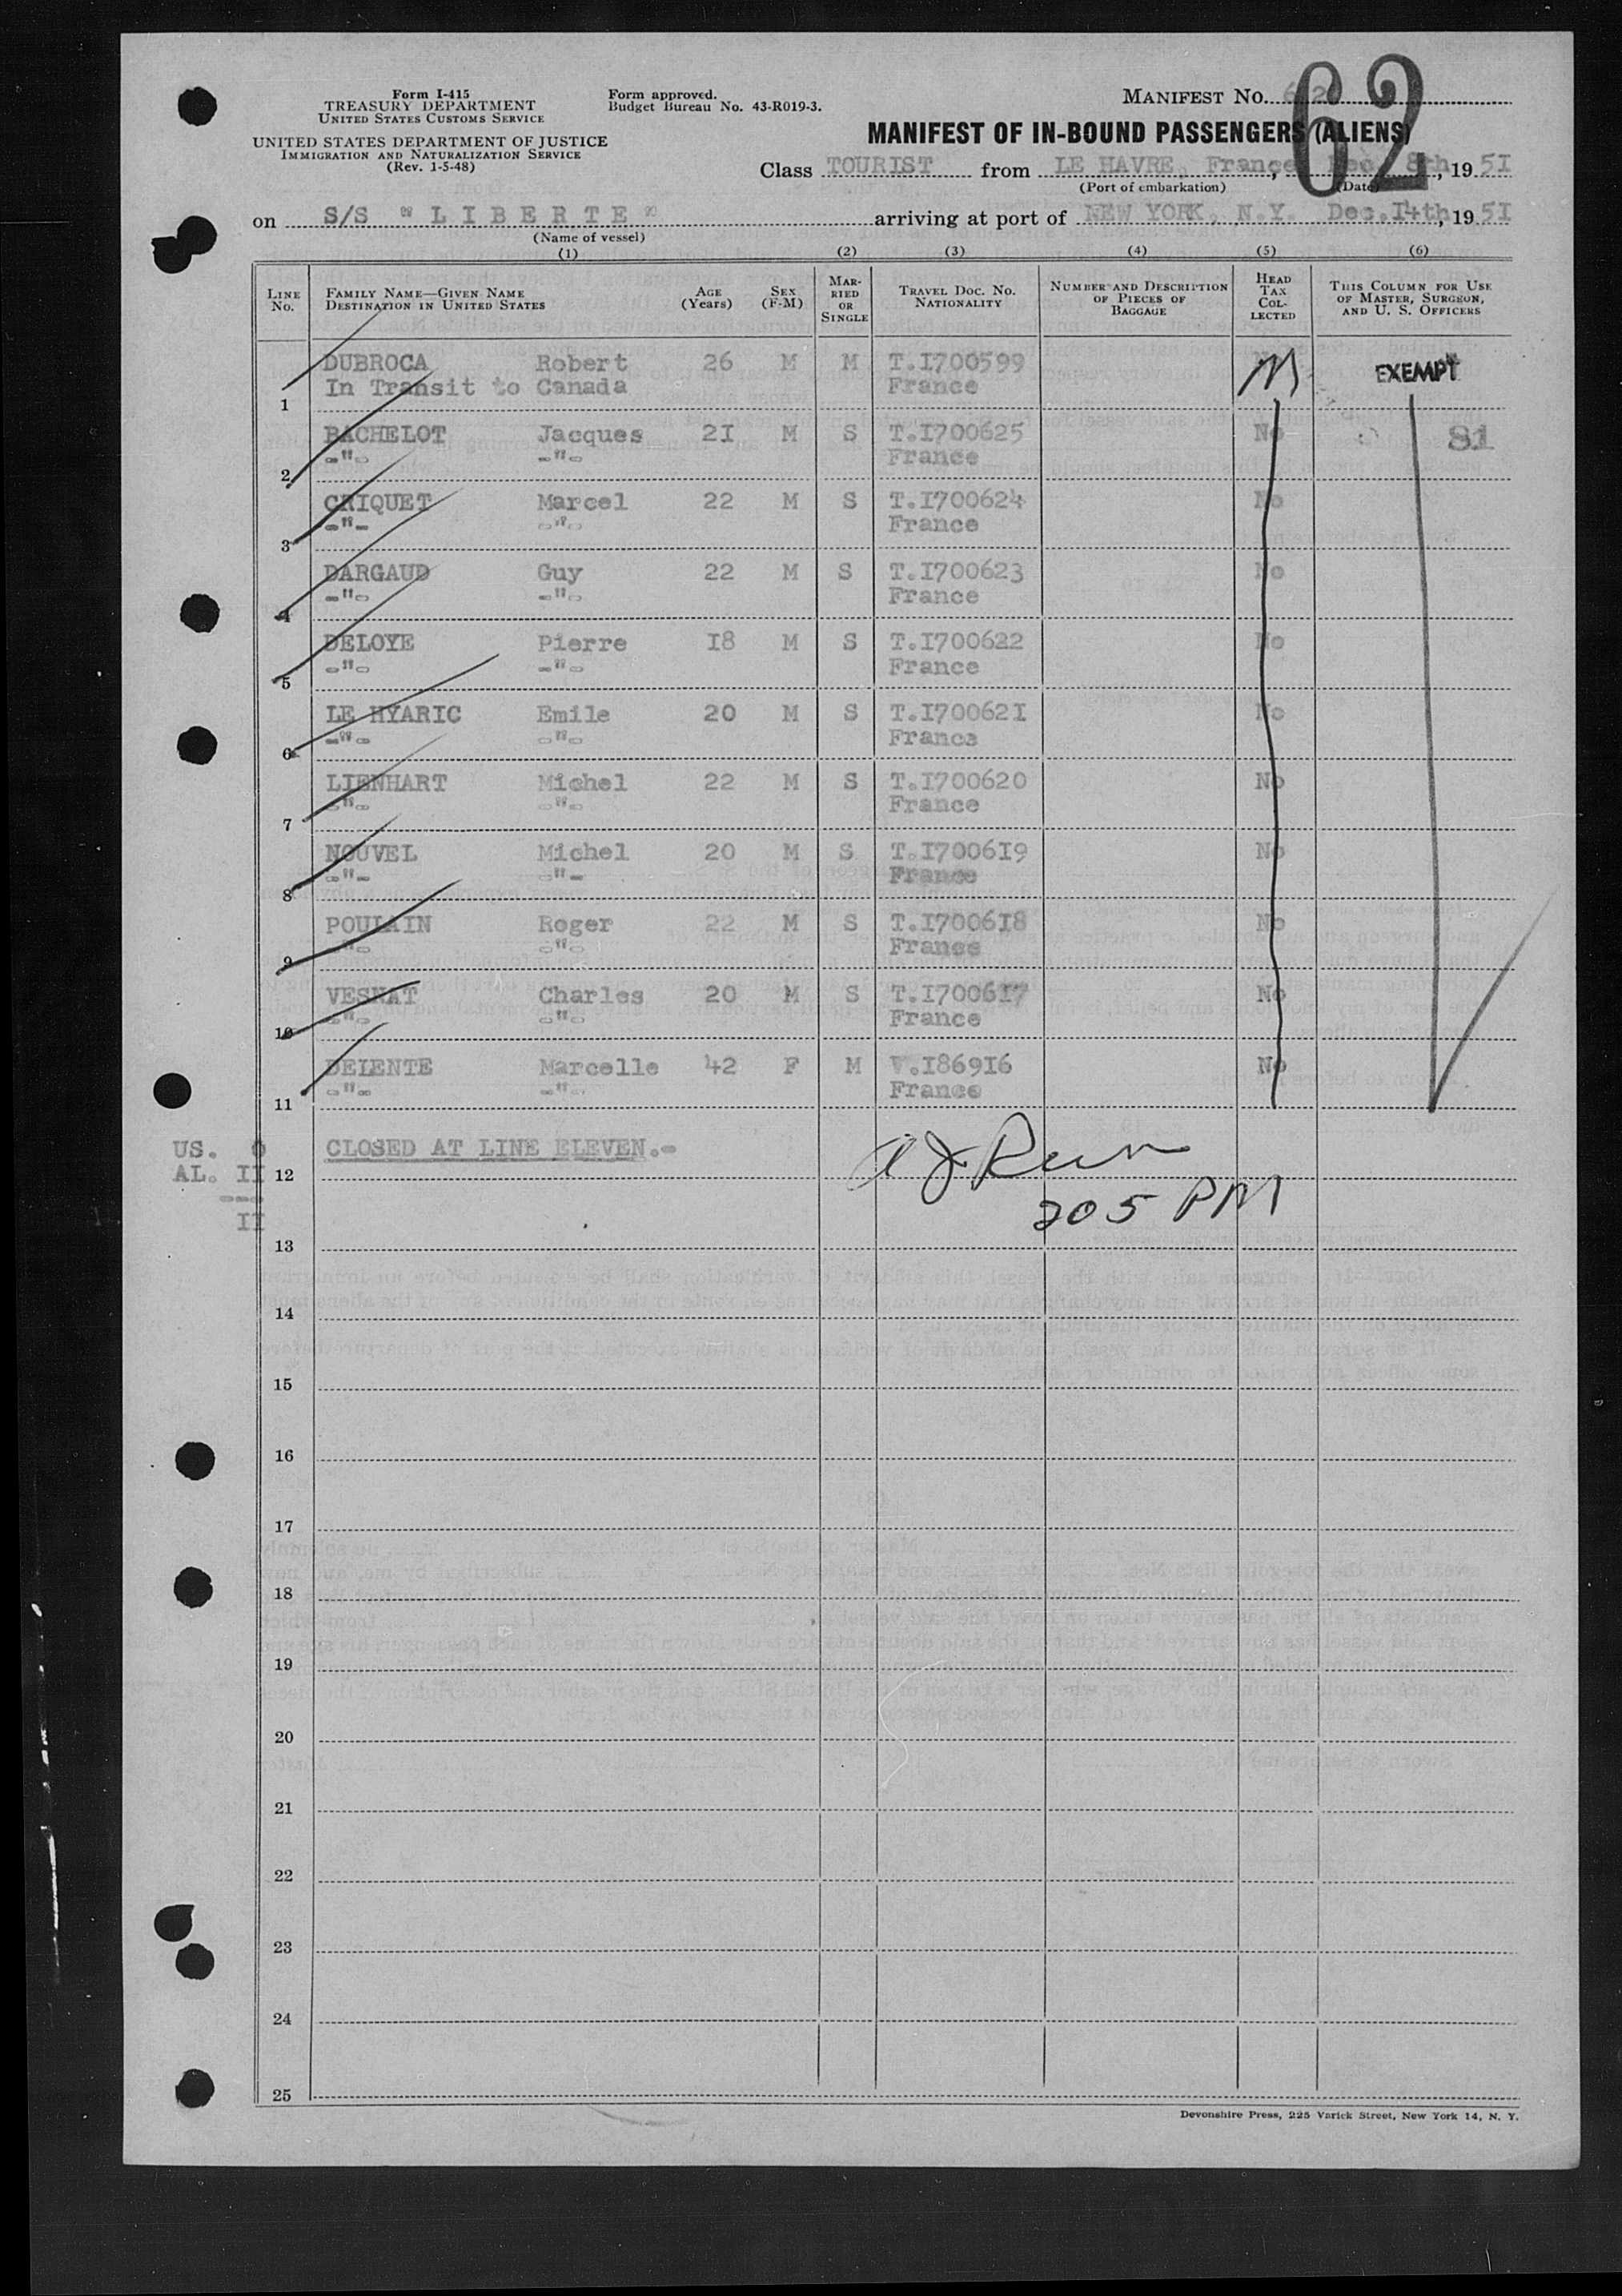 Form I-415
TREASURY DEPARTMENT
UNITED STATES CUSTOMS SERVICE
UNITED STATES DEPARTMENT OF JUSTICE
IMMIGRATION AND NATURALIZATION SERVICE
(Rev. 1-5-48)
Form approved.
Budget Bureau No. 43-R019-3.
MANIFEST NO. 62
62
MANIFEST OF IN-BOUND PASSENGERS (ALIENS)
Class TOURIST from LE HAVRE, France, Dec. 8th, 1951
(Port of embarkation) (Date)
on S/S "LIBERTE" arriving at port of NEW YORK, N.Y. Dec.I4th, 195I
(Name of vessel)
(1) (2) (3) (4) (5) (6)
LINE No. FAMILY NAME—GIVEN NAME DESTINATION IN UNITED STATES AGE (Years) SEX (F-M) MARRIED OR SINGLE TRAVEL DOC. NO. NATIONALITY NUMBER AND DESCRIPTION OF PIECES OF BAGGAGE HEAD TAX COLLECTED THIS COLUMN FOR USE OF MASTER, SURGEON, AND U. S. OFFICERS
DUBROCA Robert 26 M M T.I700599 EXEMPT
1 In Transit to Canada France
BACHELOT Jacques 2I M S T.I700625 No 81
2 -"- -"- France
CRIQUET Marcel 22 M S T.I700624 No
3 -"- -"- France
DARGAUD Guy 22 M S T.I700623 No
4 -"- -"- France
DELOYE Pierre I8 M S T.I700622 No
5 -"- -"- France
LE HYARIC Emile 20 M S T.I70062I No
6 -"- -"- France
LIENHART Michel 22 M S T.I700620 No
7 -"- -"- France
NOUVEL Michel 20 M S T.I7006I9 No
8 -"- -"- France
POULAIN Roger 22 M S T.I7006I8 No
9 -"- -"- France
VESNAT Charles 20 M S T.I7006I7 No
10 -"- -"- France
DELENTE Marcelle 42 F M V.I869I6 No
11 -"- -"- France
US. 0
AL. II
---
II
12 CLOSED AT LINE ELEVEN.-
205 PM
13
14
15
16
17
18
19
20
21
22
23
24
25
Devonshire Press, 225 Varick Street, New York 14, N. Y.